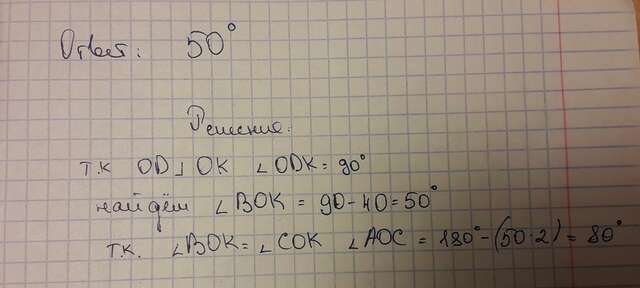 Ответ: 50°
Решение.
т.к OD⊥OK ∠ODK = 90°
найдём ∠BOK = 90-40=50°
т.к. ∠BOK=∠COK ∠AOC = 180°-(50·2) = 80°